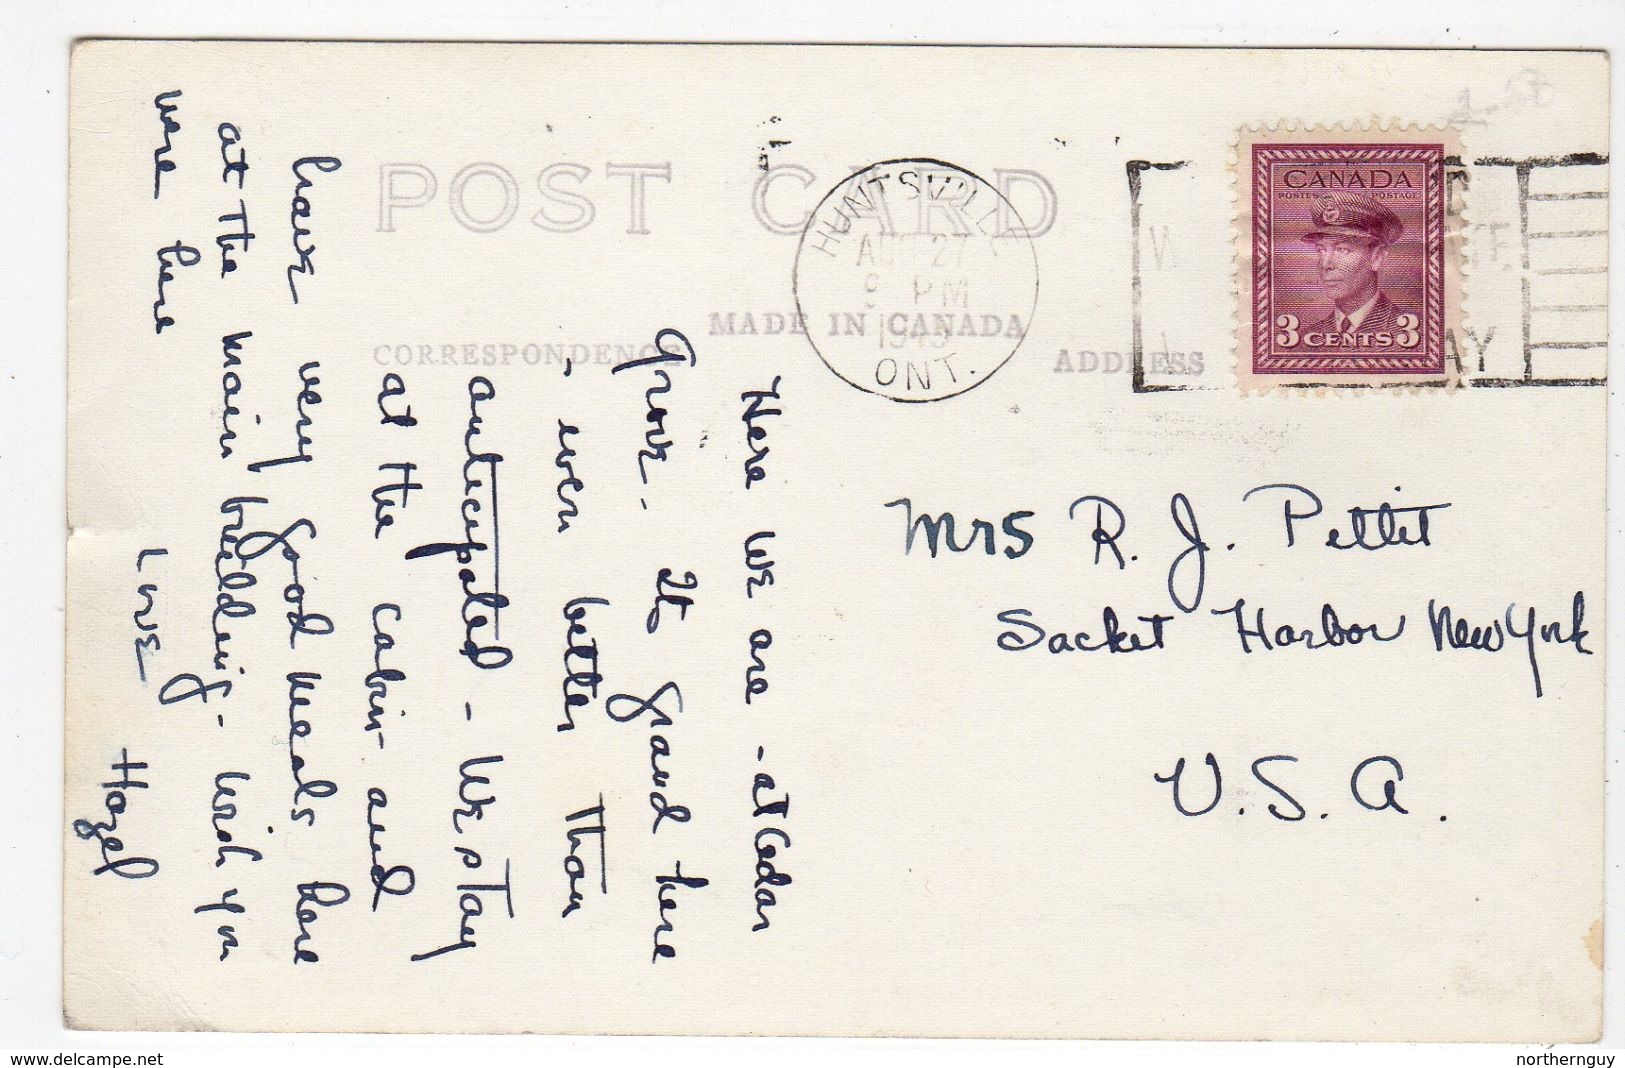 POST CARD
HUNTSVILLE
AUG 27
9 PM
ONT.
CANADA
POSTES POSTAGE
3 CENTS 3
AY
MADE IN CANADA
CORRESPONDENCE
ADDRESS
Here we are - at Cedar
Grove - It's grand here
- even better than
anticipated - We stay
at the cabin - and
have very good meals here
at the main building - wish you
were here
Love
Hazel
Mrs R. J. Pettit
Sacket Harbor New York
U.S.A.
www.delcampe.net
northernguy